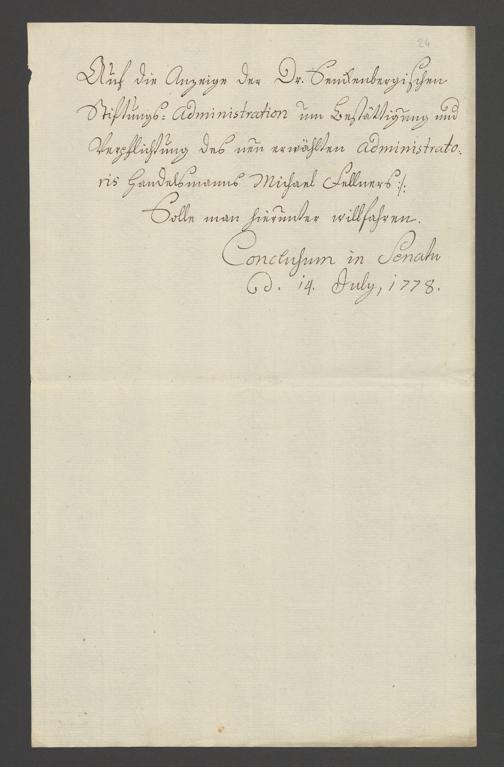 24
Auf die Anzeige der Dr. Senckenbergischen
Stiftungs-Administration um Bestättigung und
Verpflichtung des neu erwählten Administrato-
ris Handelsmanns Michael Fellners :/:
Solle man hierunter willfahren.
Conclusum in Senatu
d. 14. July, 1778.